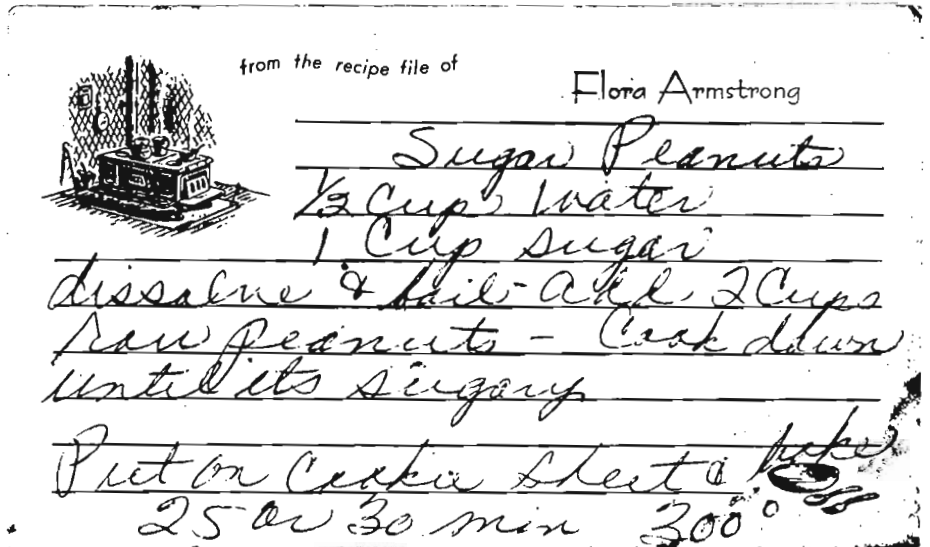 from the recipe file of
Flora Armstrong
Sugar Peanuts
1/2 Cup Water
1 Cup sugar
dissolve & boil - add 2 Cups
raw peanuts - Cook down
until its sugary
Put on Cookie Sheet & bake
25 or 30 min 300°